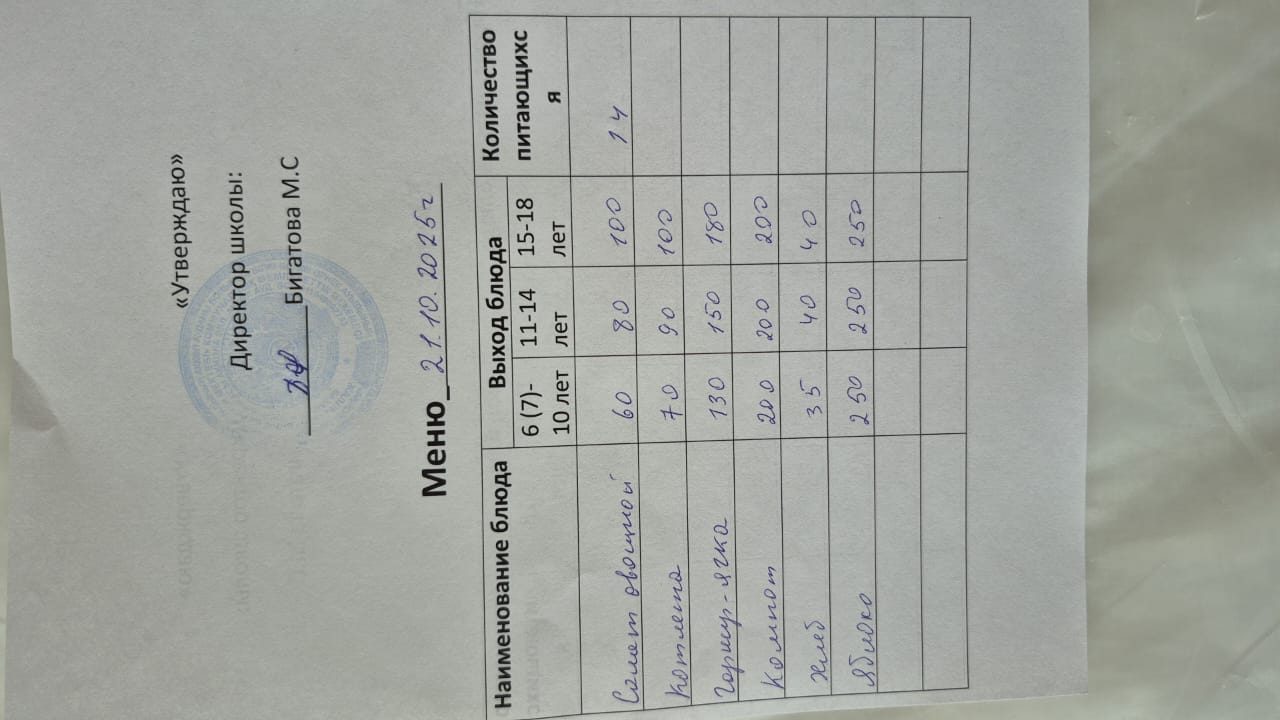 «Утверждаю»
Директор школы:
Бигатова М.С
Меню 21.10.2025г
Наименование блюда Выход блюда Количество питающихс я
6 (7)- 10 лет 11-14 лет 15-18 лет
Салат овощной 60 80 100 14
Котлета 70 90 100
Гарнир-ячка 130 150 180
Компот 200 200 200
Хлеб 35 40 40
Яблоко 250 250 250